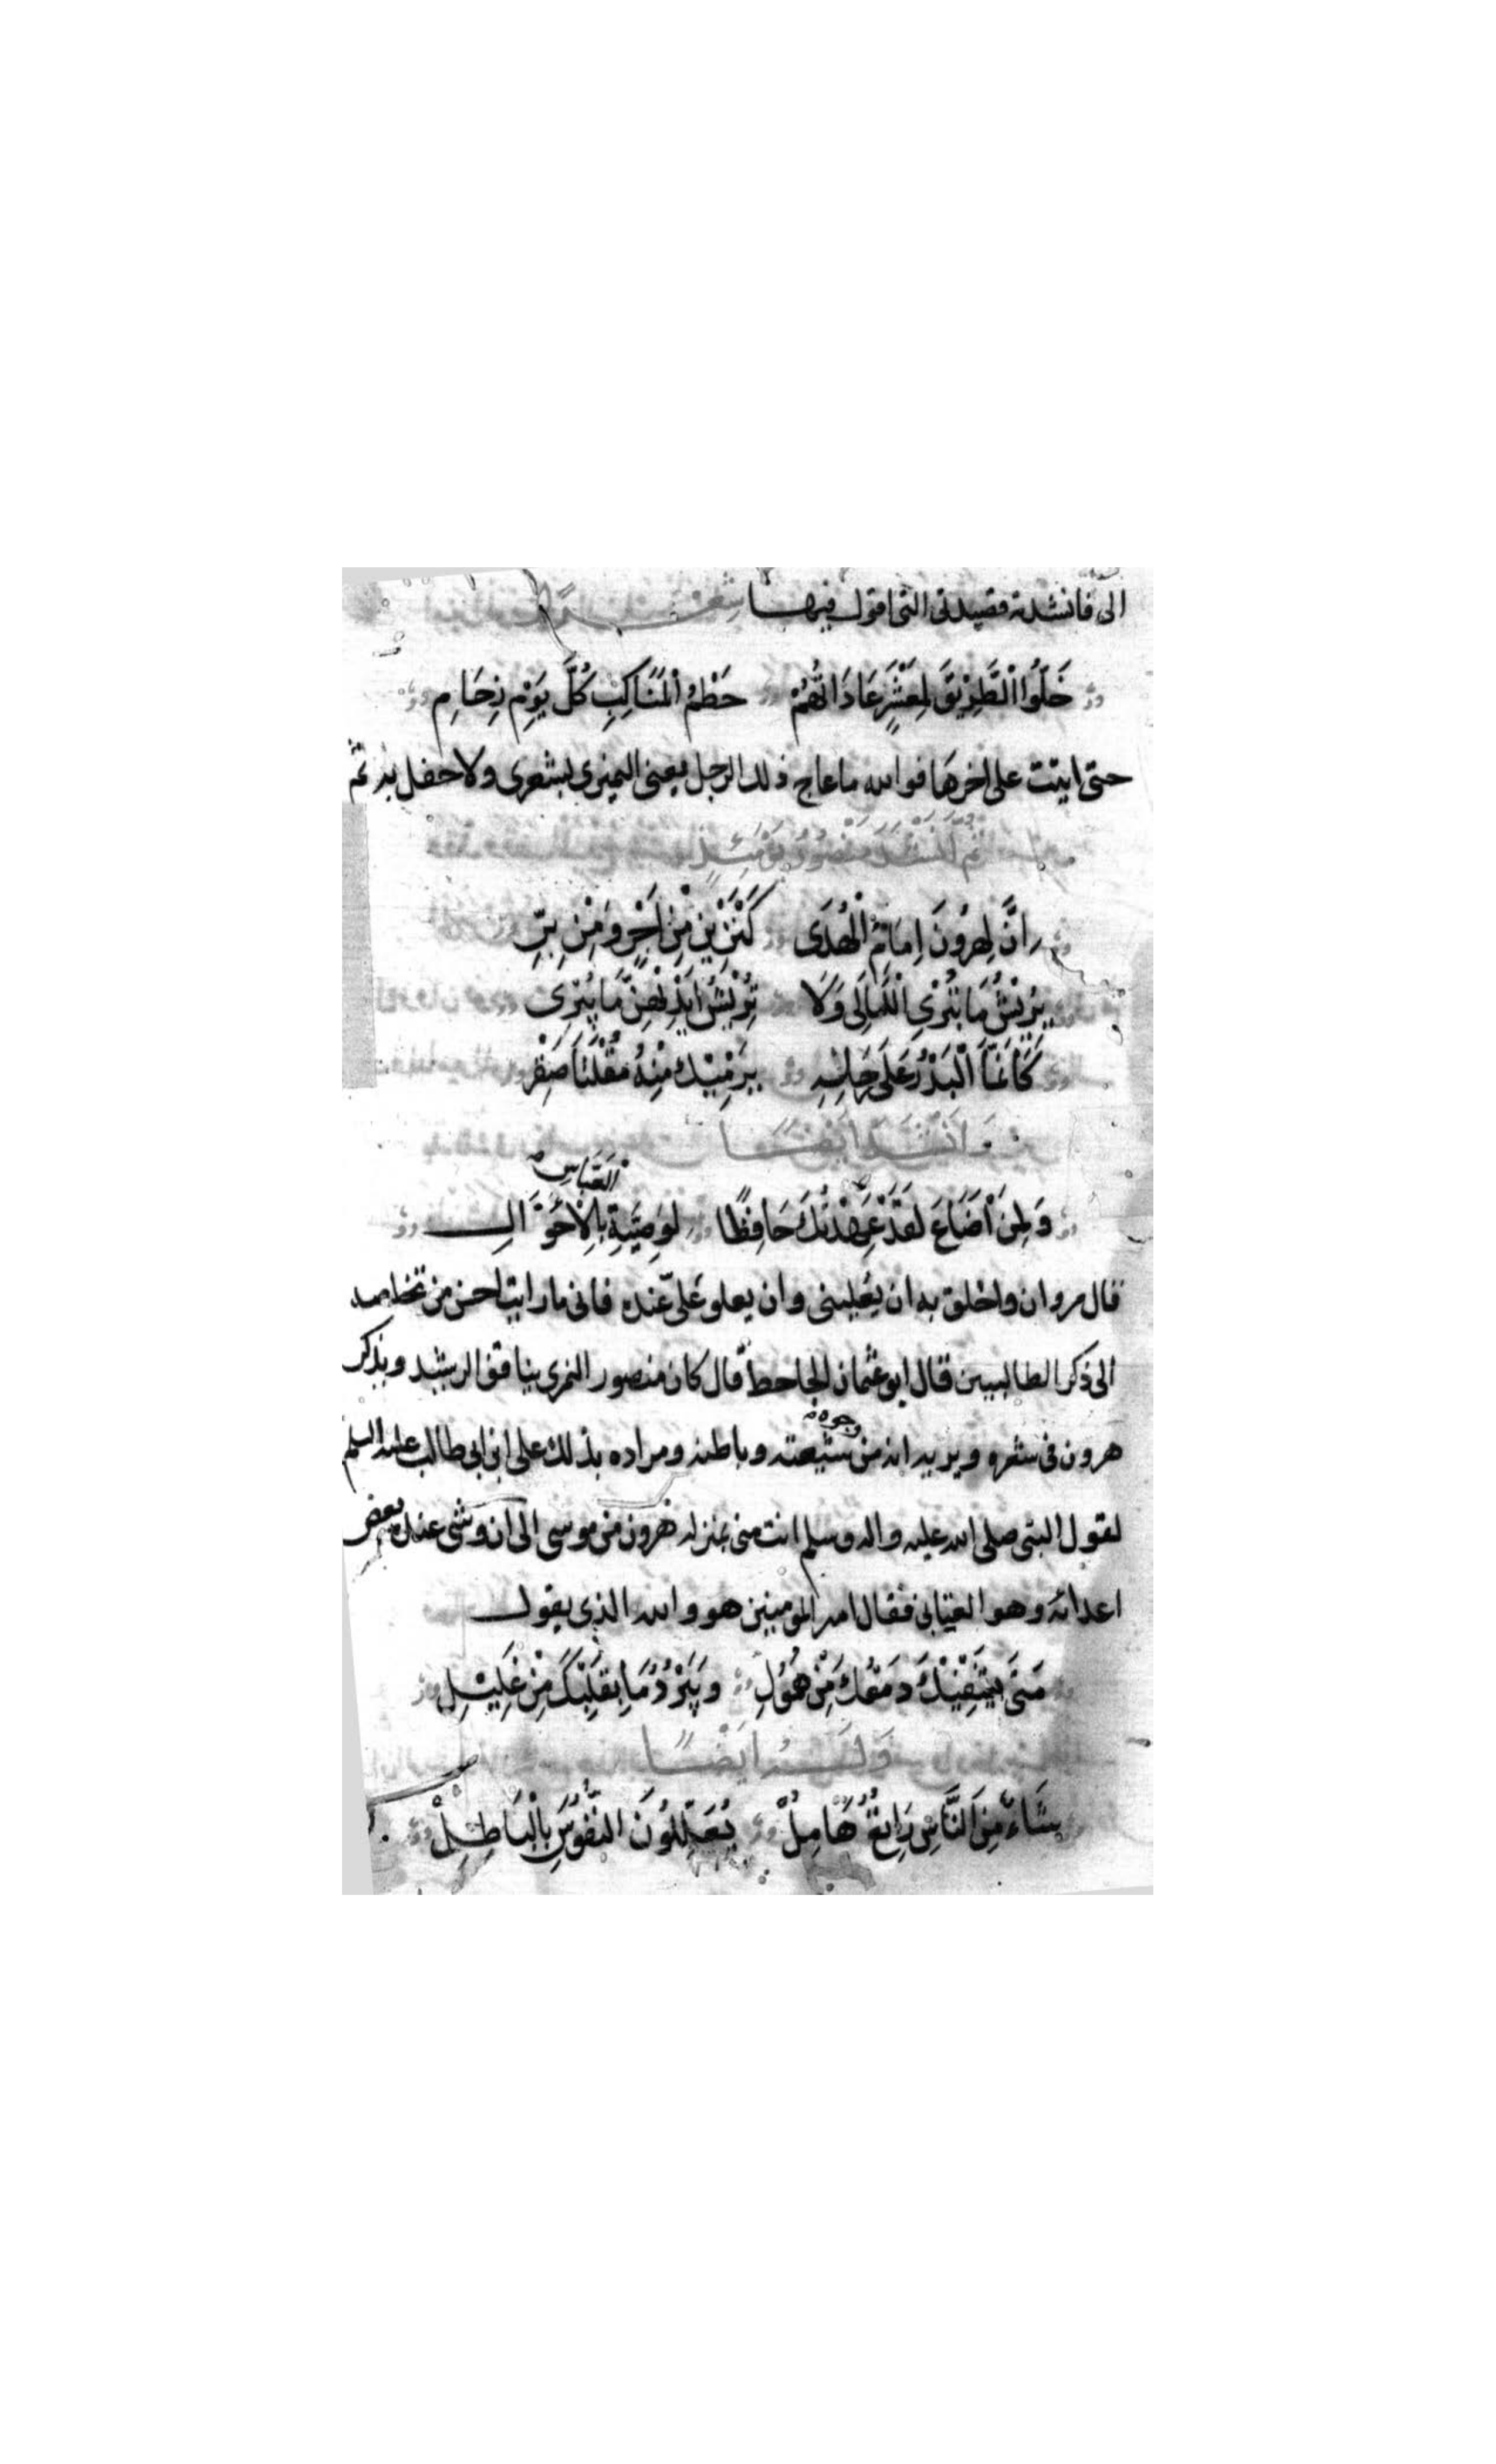 الى فانشدته قصيدتى التى اقول فيها شعر
خَلُّوا الْطَّرِيْقَ لِمَعْشَرٍ عَادَاتُهُمْ حَطْمُ الْمَنَاكِبِ كُلَّ يَوْمِ زِحَامِ
حتى اتيت على اخرها فوالله ما عاج ذلك الرجل يعنى النميرى بشعرى ولا حفل به ثم
ثم انْشَدَ مَنْصُورُ يَوْمَئِذٍ
اِنَّ لِهرُونَ اِمَامِ الْهُدَى كَنْزَيْنِ مِنْ اَجْرٍ وَمِنْ بِرِّ
يَرِيْشُ مَا تَبْرِى اللَّيَالِى وَلَا تَرِيْشُ اَيْدِيْهِنَّ مَا يَبْرِى
كَاَنَّمَا الْبَدْرُ عَلَى يَرْمِيْكَ مِنْهُ مُقْلَتَا صَقْرِ
وَاَنْشَدَ اَيْضًا
وَلِمَنْ اَضَاعَ لَقَدْ عَهِدْتُكَ حَافِظًا لِوَصِيَّةِ الْعَبَّاسِ بِالْاَخْوَالِ
قال مروان واخلق به ان يغلبنى وان يعلو عَلىّ عنده فانى ما رايت احسن من تخلصه
الى ذكر الطالبيين قال ابو عثمان الجاحظ قال كان منصور النمرى ينافق الرشيد ويذكر
هرون فى شعره ويريد انه من وجوه شيعته وباطنه ومراده بذلك على ابن ابى طالب عليه السلم
لقول النبى صلى الله عليه واله وسلم انت منى بمنزلة هرون من موسى الى ان وشى عنده بعض
اعدائه وهو العتابى فقال امير المومنين هو والله الذى يقول
مَتَى يَشْفِيْكَ دَمْعُكَ مِنْ هُمُوْلِ وَيَبْرُدُ مَا بِقَلْبِكَ مِنْ غَلِيْلِ
وَلَـــهُ اَيْضًا
شَاءٌ مِنَ النَّاسِ رَاتِعٌ هَامِلْ يُعَلِّلُونَ النُّفُوْسَ بِالْبَاطِلْ